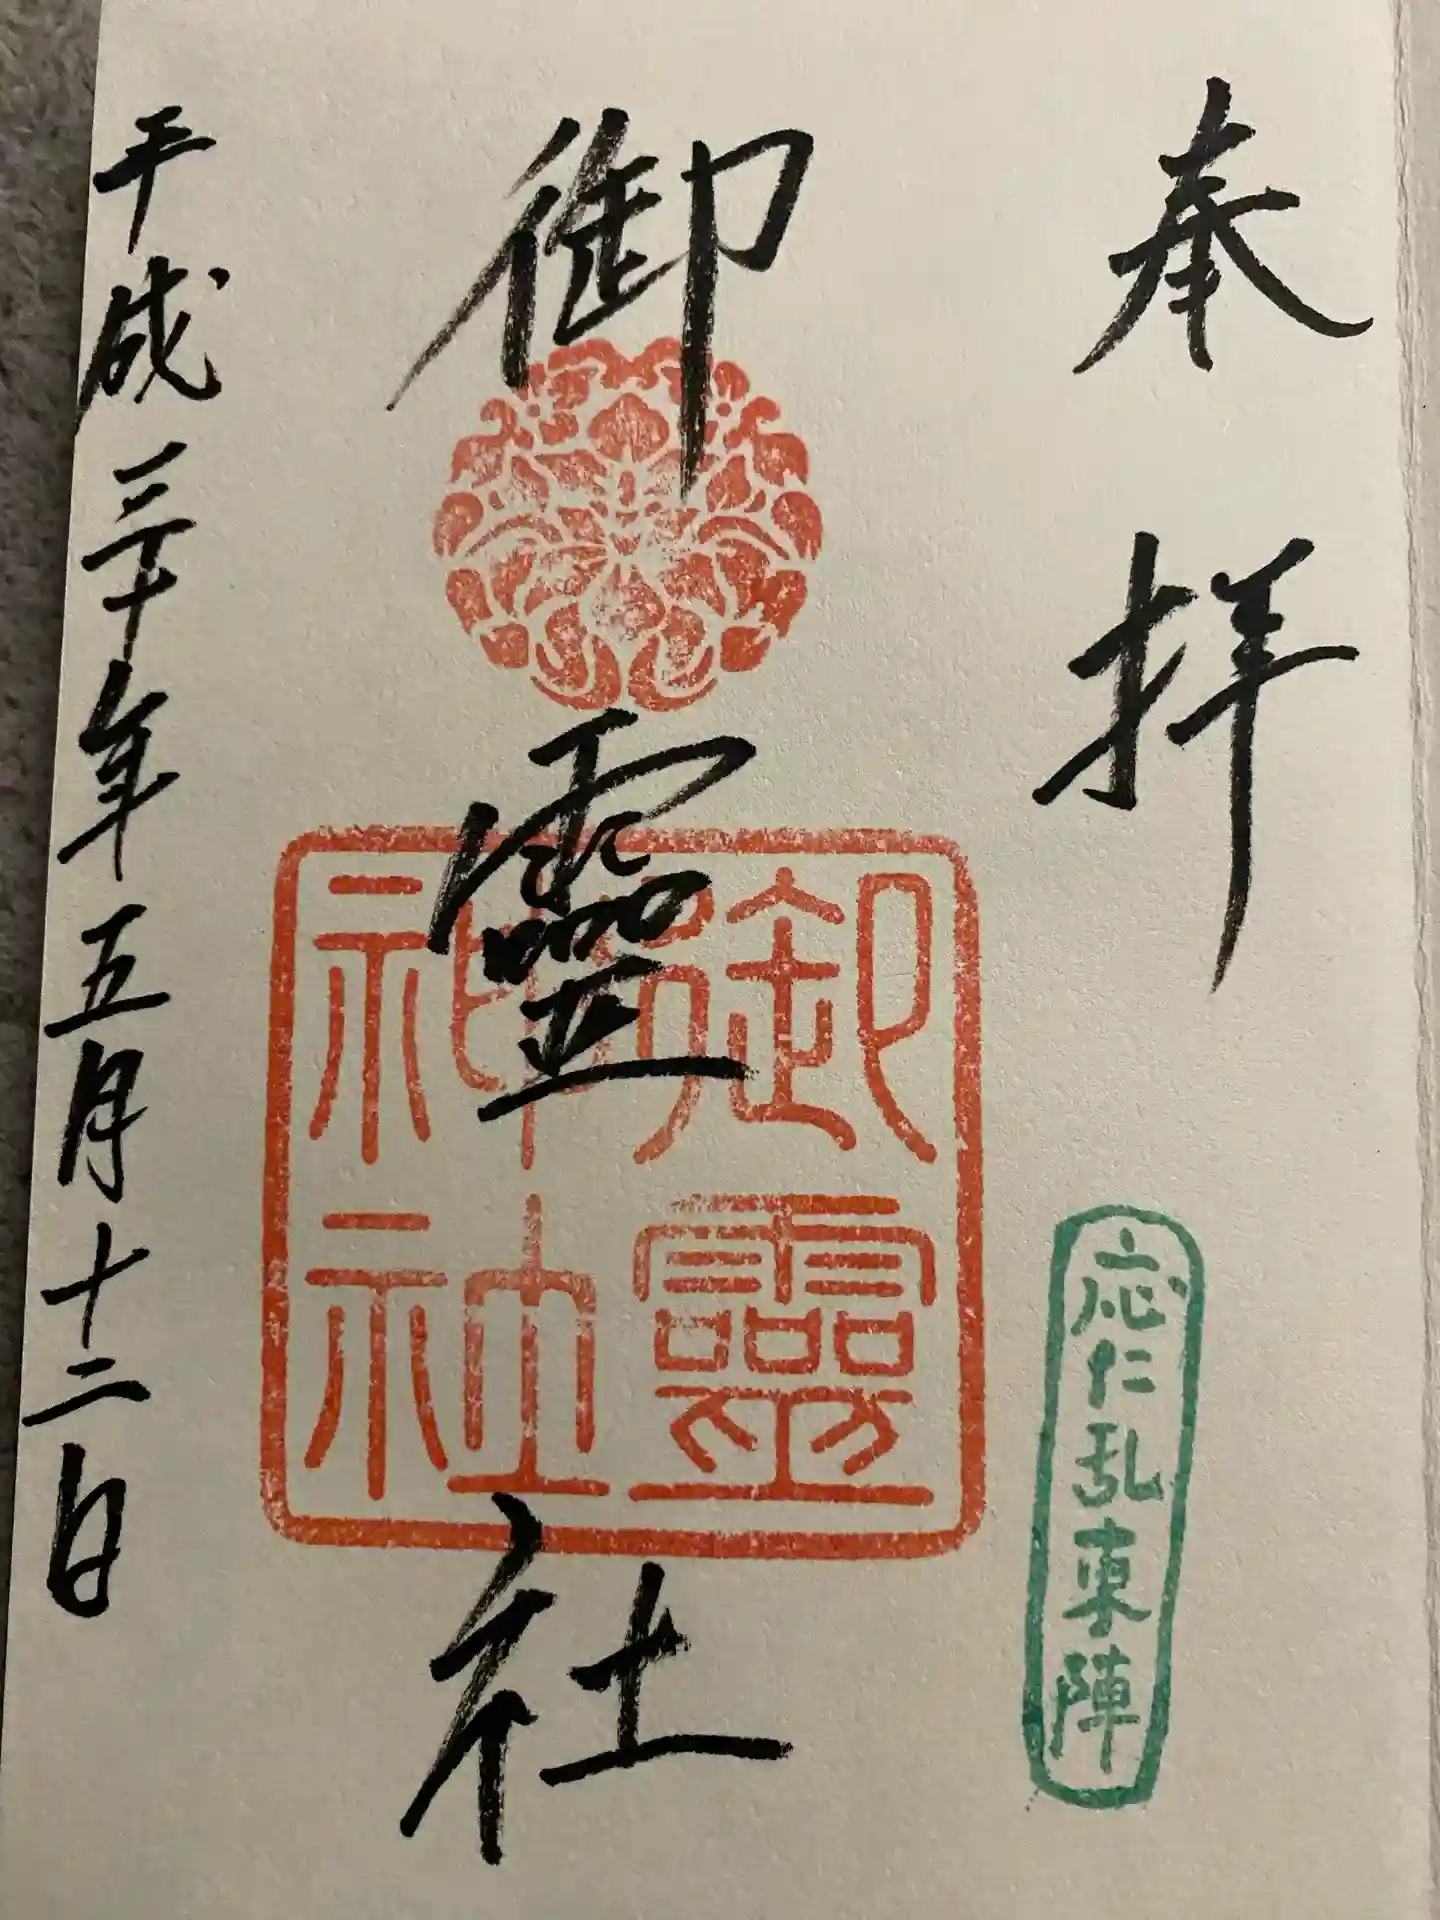 奉拝
応仁乱東陣
御靈社
御靈
神社
平成三十年五月十二日